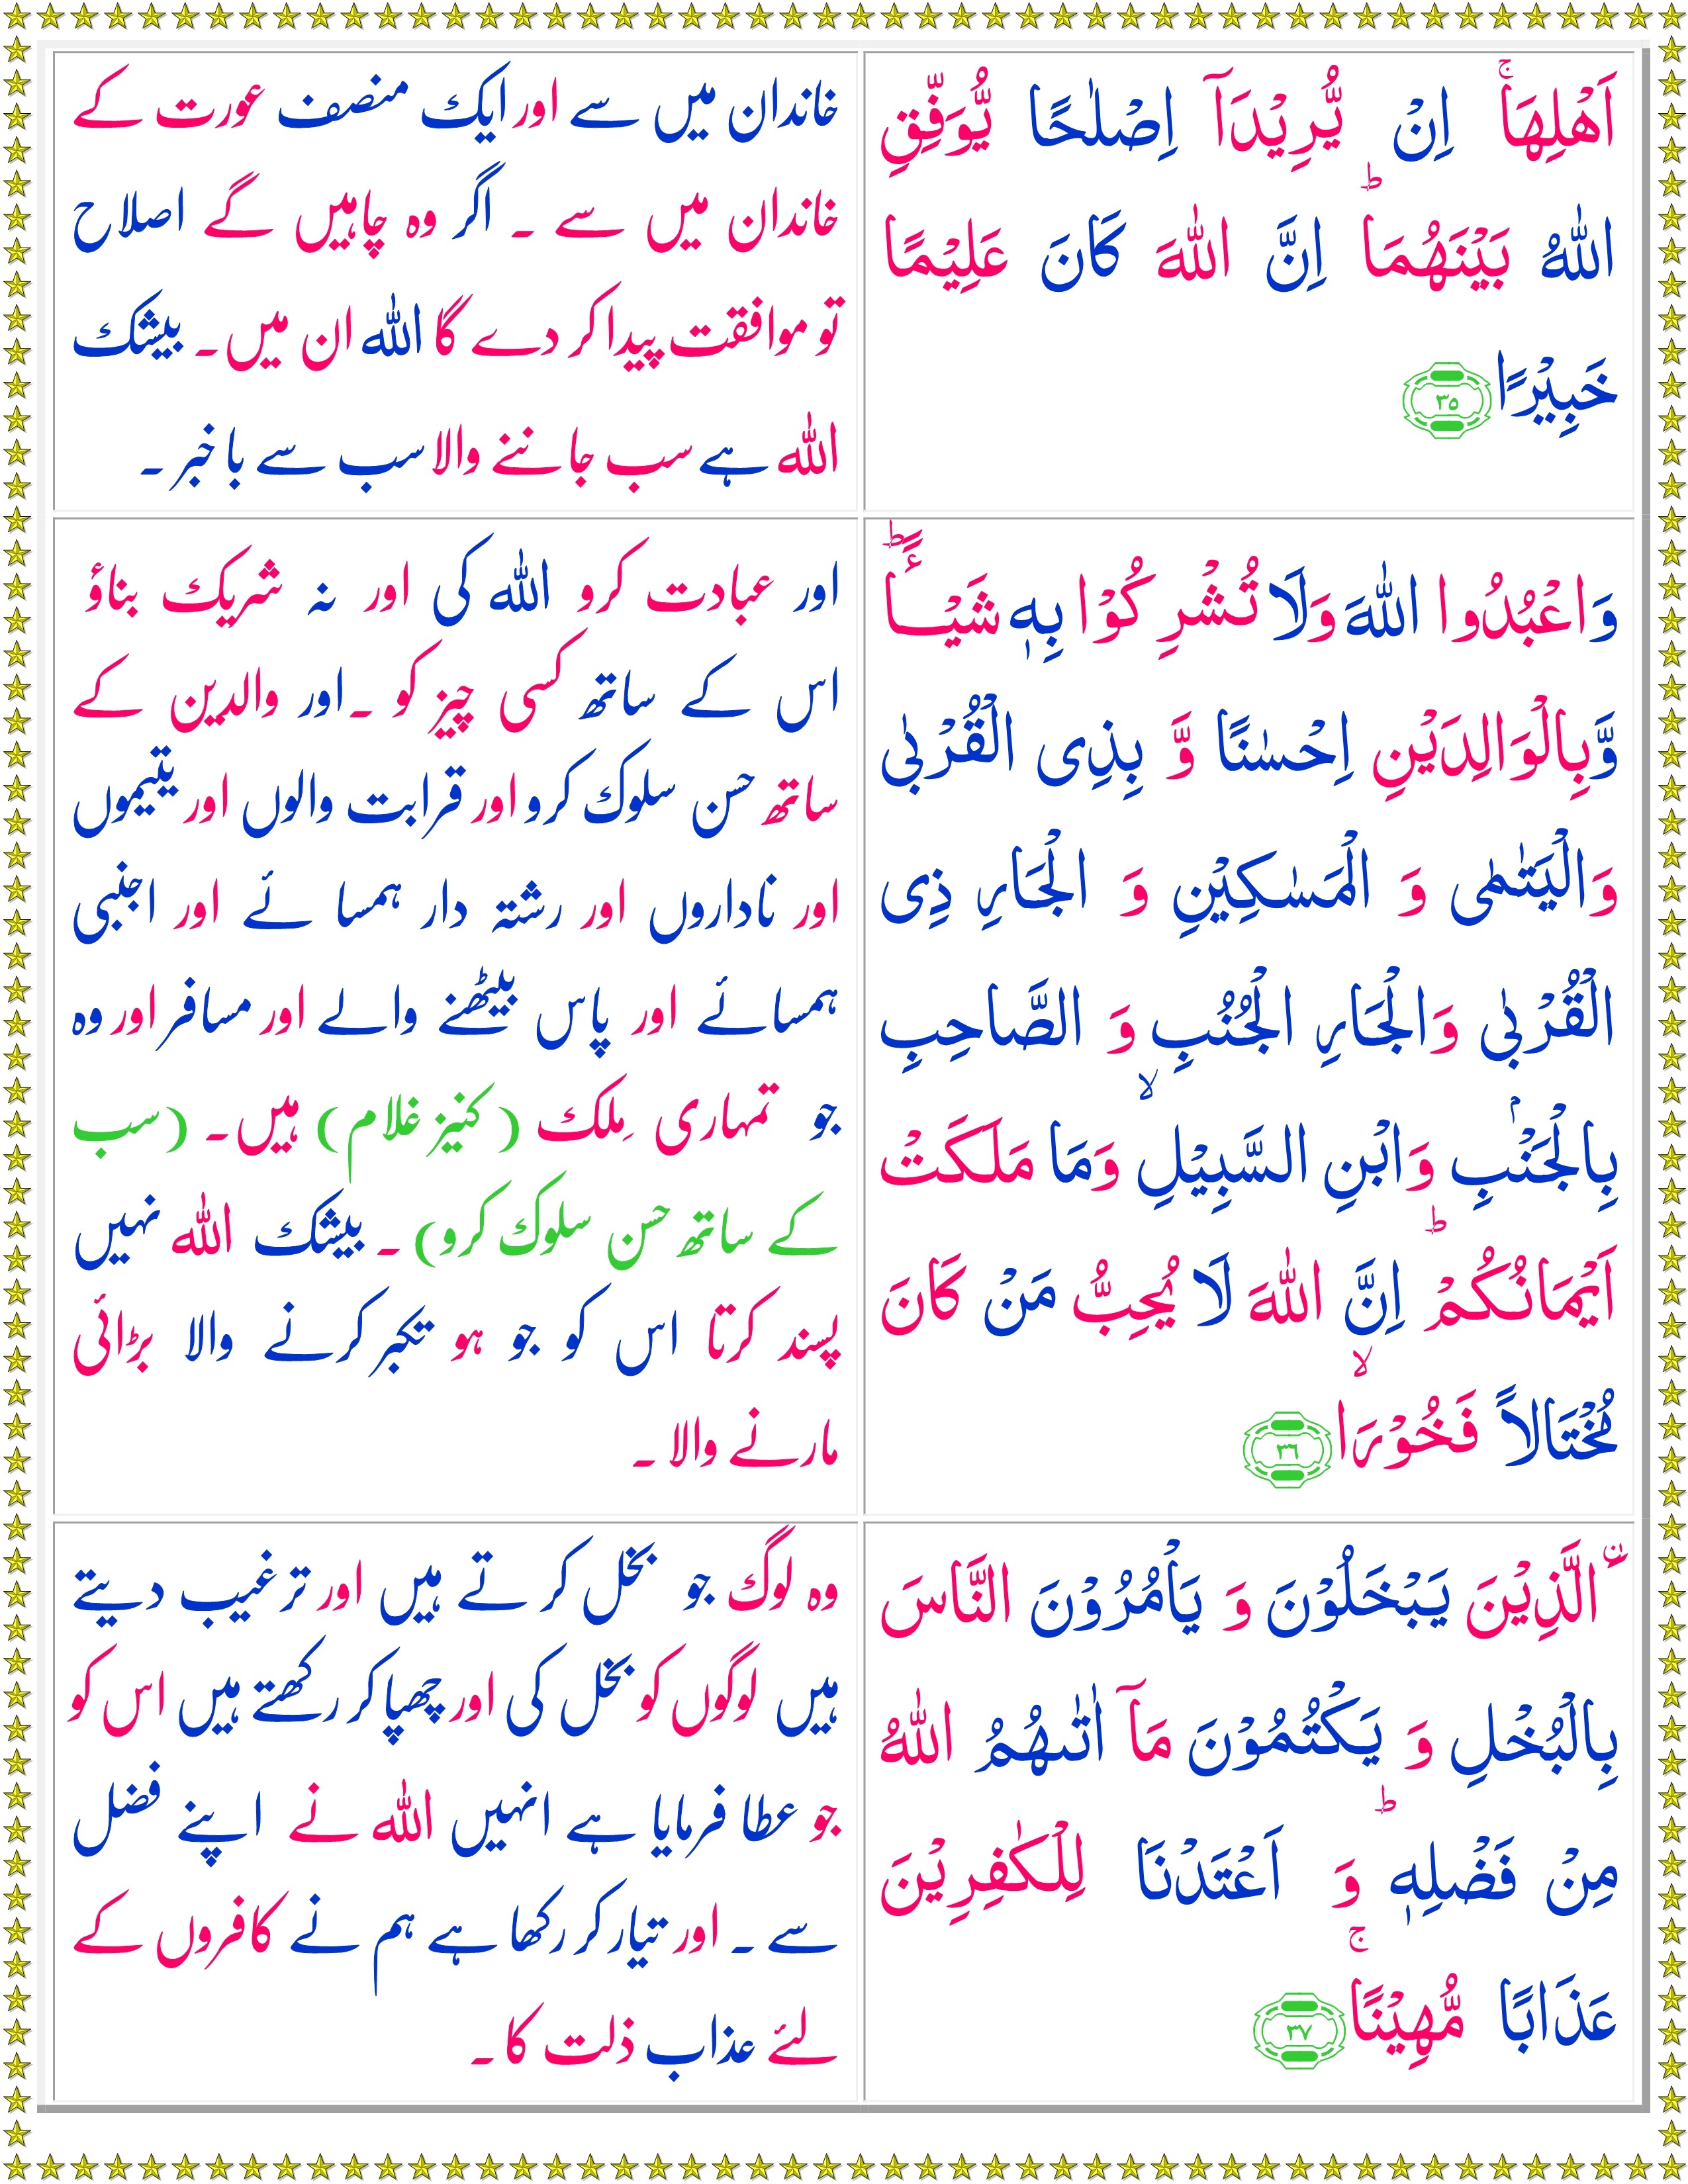 اَهْلِهَاۚ اِنْ يُّرِيْدَاۤ اِصْلٰحًا يُّوَفِّقِ
اللّٰهُ بَيْنَهُمَاؕ اِنَّ اللّٰهَ كَانَ عَلِيْمًا
خَبِيْرًا ۳۵
خاندان میں سے اور ایک منصف عورت کے
خاندان میں سے ۔ اگر وہ چاہیں گے اصلاح
تو موافقت پیدا کر دے گا اللہ ان میں۔ بیشک
اللہ ہے سب جاننے والا سب سے با خبر ۔
وَاعْبُدُوا اللّٰهَ وَلَا تُشْرِكُوْا بِهٖ شَيْـــًٔاؕ
وَّبِالْوَالِدَيْنِ اِحْسٰنًا وَّ بِذِى الْقُرْبٰى
وَالْيَتٰمٰى وَ الْمَسٰكِيْنِ وَ الْجَارِ ذِى
الْقُرْبٰى وَالْجَارِ الْجُنُبِ وَ الصَّاحِبِ
بِالْجَنْۢبِ وَابْنِ السَّبِيْلِۙ وَمَا مَلَكَتْ
اَيْمَانُكُمْؕ اِنَّ اللّٰهَ لَا يُحِبُّ مَنْ كَانَ
مُخْتَالاً فَخُوْرَاۙ ۳۶
اور عبادت کرو اللہ کی اور نہ شریک بناؤ
اس کے ساتھ کسی چیز کو ۔اور والدین کے
ساتھ حسن سلوک کرو اور قرابت والوں اور یتیموں
اور ناداروں اور رشتہ دار ہمسا ئے اور اجنبی
ہمسائے اور پاس بیٹھنے والے اور مسافر اور وہ
جو تمہاری مِلک (کنیز غلام) ہیں۔ (سب
کے ساتھ حسن سلوک کرو) ۔ بیشک اللہ نہیں
پسند کرتا اس کو جو ہو تکبر کرنے والا بڑائی
مارنے والا ۔
ۨالَّذِيْنَ يَبْخَلُوْنَ وَ يَاْمُرُوْنَ النَّاسَ
بِالْبُخْلِ وَ يَكْتُمُوْنَ مَاۤ اٰتٰٮهُمُ اللّٰهُ
مِنْ فَضْلِهٖؕ وَ اَعْتَدْنَا لِلْكٰفِرِيْنَ
عَذَابًا مُّهِيْنًاۚ ۳۷
وہ لوگ جو بخل کرتے ہیں اور ترغیب دیتے
ہیں لوگوں کو بخل کی اور چھپا کر رکھتے ہیں اس کو
جو عطا فرمایا ہے انہیں اللہ نے اپنے فضل
سے ۔ اور تیار کر رکھا ہے ہم نے کافروں کے
لئے عذاب ذلت کا ۔